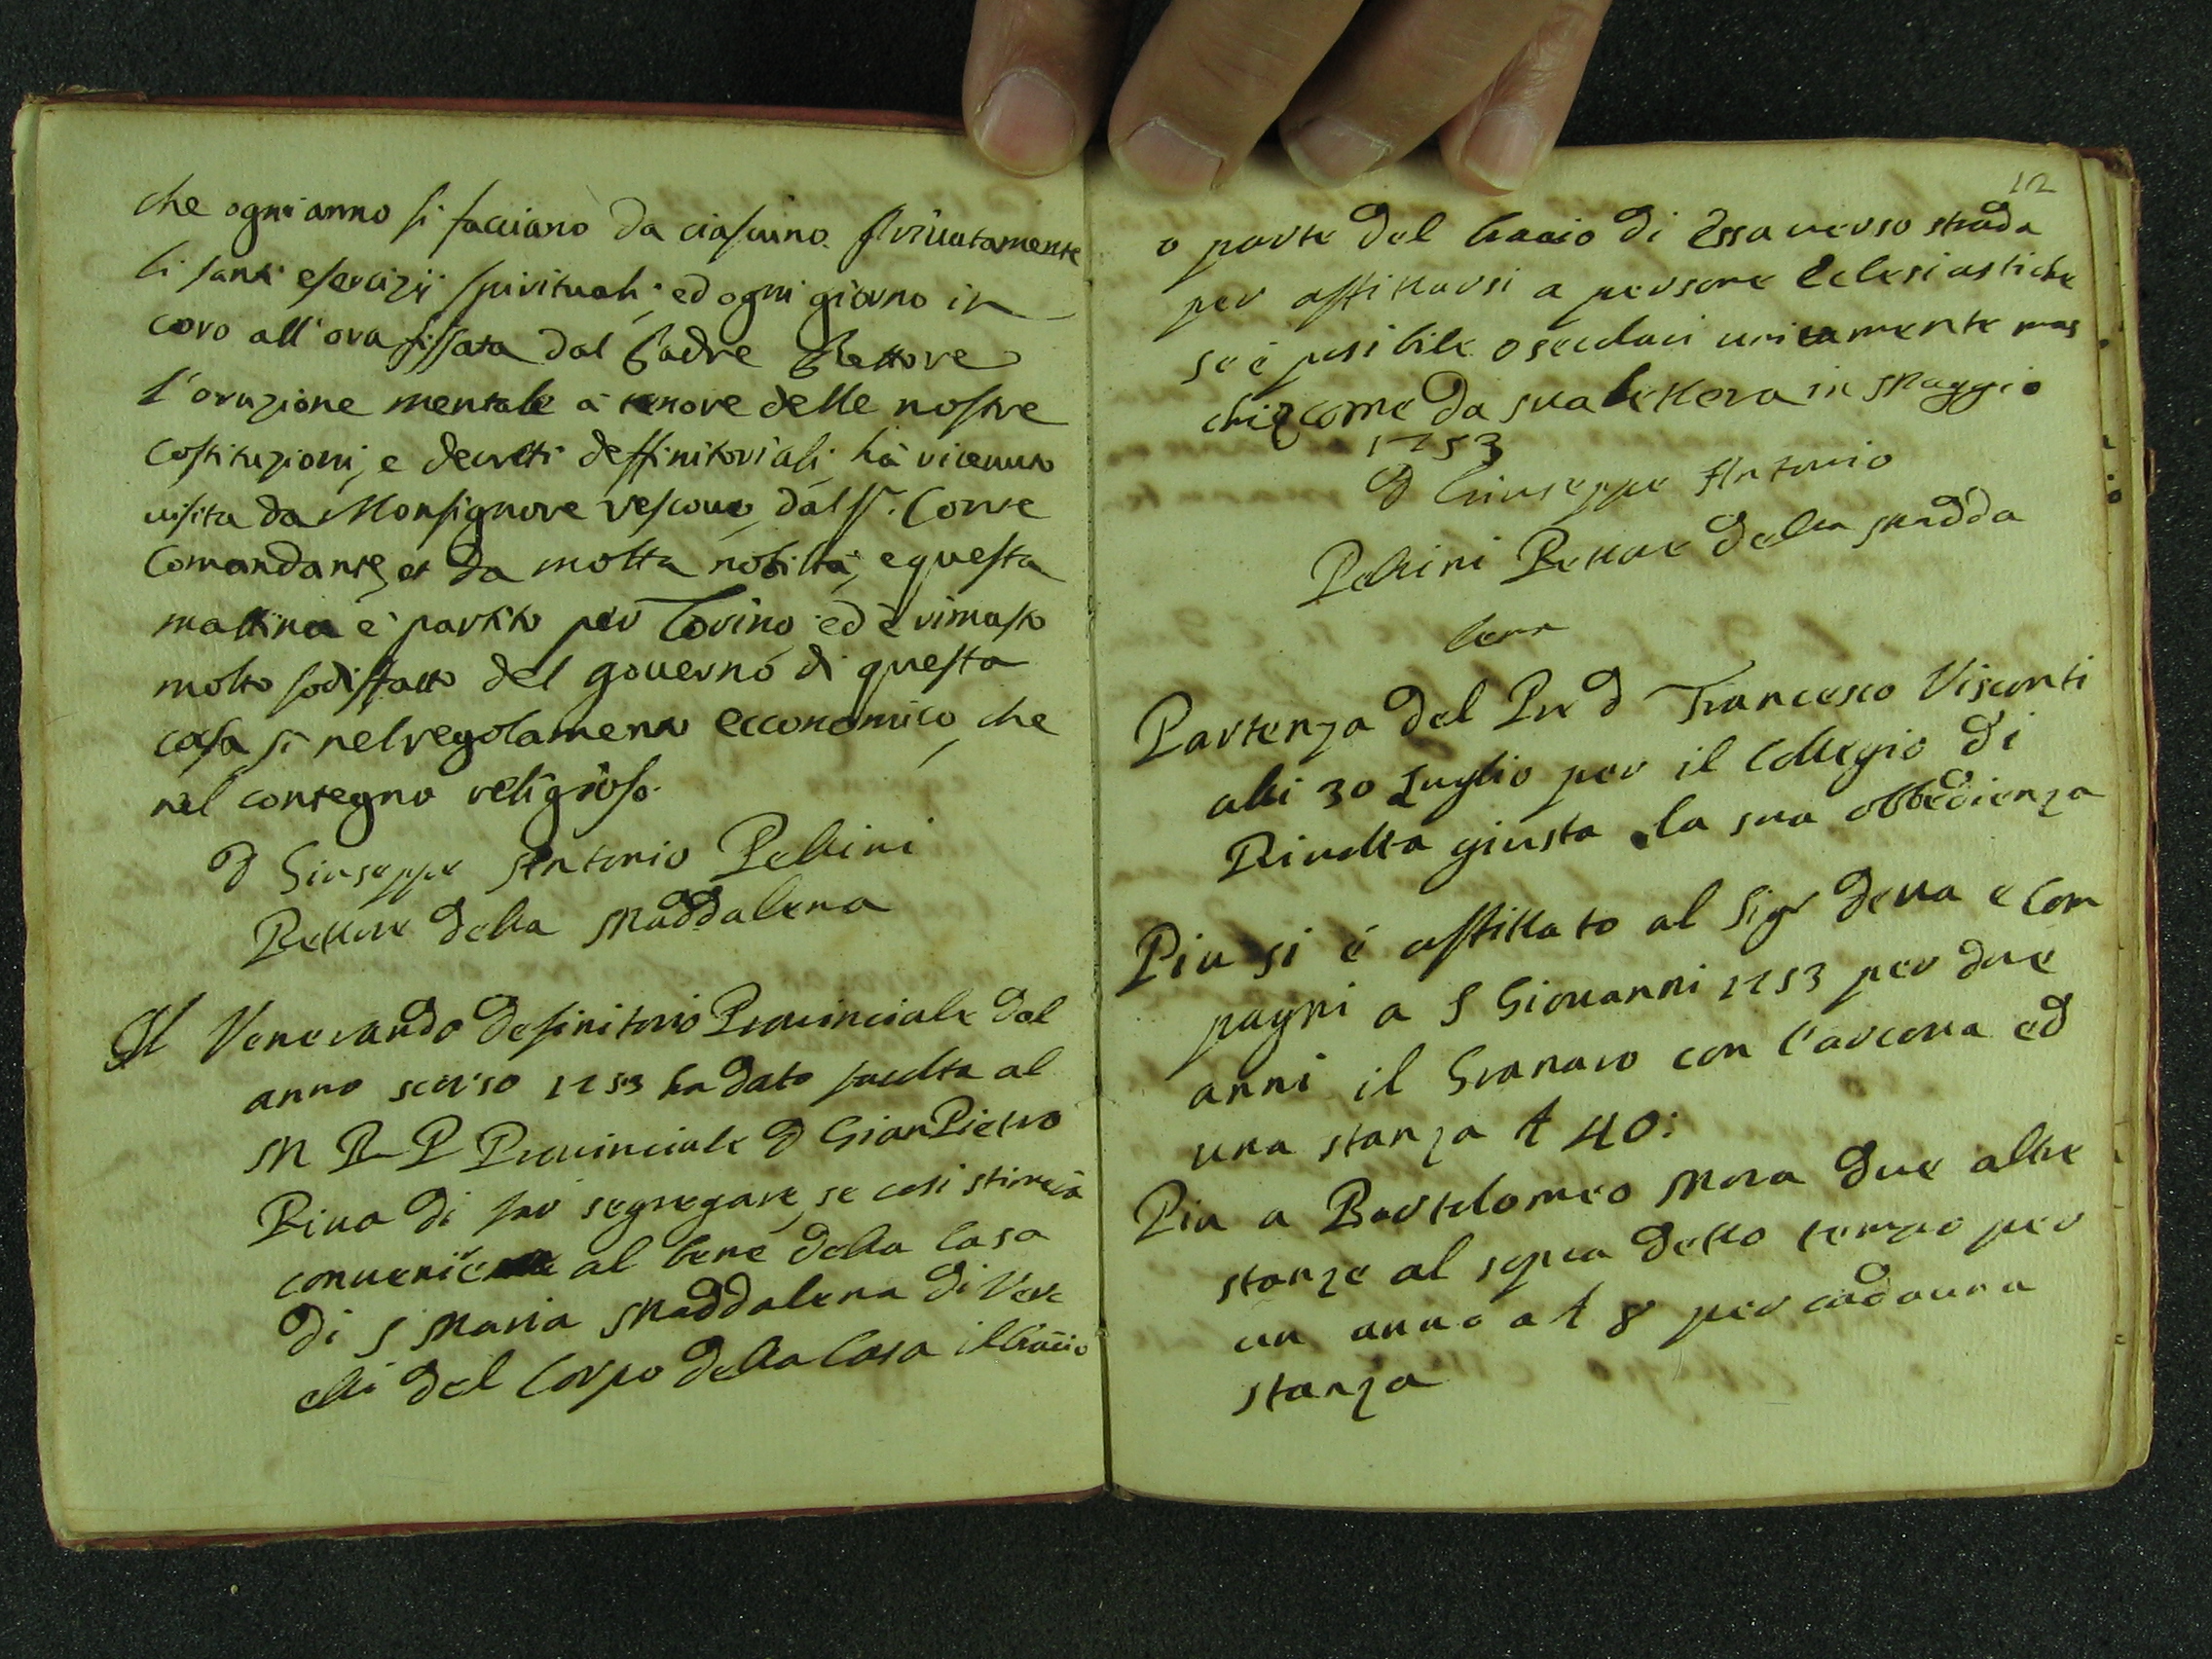 che ogni anno si facciano da ciascuno privatamente
li santi esercizij spirituali, ed ogni giorno in
coro all'ora fissata dal Padre Rettore
l'orazione mentale à tenore delle nostre
costituzioni, e decreti deffinitoriali, hà ricevuto
visita da Monsignore vescovo, dal S.r Conte
Comandante, et da molta nobiltà, e questa
mattina è partito per Torino ed è rimasto
molto sodisfatto del governo di questa
casa sì nel regolamento ecconomico, che
nel contegno religioso.
D Giuseppe Antonio Pellini
Rettore della Maddalena
Il Venerando Definitorio Provinciale del
anno scorso 1753 ha dato facolta al
M R P Provinciale D Gian Pietro
Riva di far segregare, se cosi stimerà
al bene della Casa
di S Maria Maddalena di Vercelli
del Corpo della Casa il braccio
12
o parte del braccio di Essa verso strada
per affittarsi a persone Eclesiastiche
se è posibile o secolari unitamente mas
chi, come da sua lettera in Maggio
1753
D Giuseppe Antonio
Pellini Rettore della Madda
lena
Partenza del Pre D Francesco Visconti
alli 30 Luglio per il Collegio di
Rivolta giusta la sua obbedienza
Piu si è affittato al Sigr e Com
pagni a S Giovanni 1753 per due
anni il Granaro con l'arcova ed
una stanza £ 40:
Piu a Bartolomeo Mora due altre
stanze al sopra detto tempo per
un anno a £ 8 per cadauna
stanza